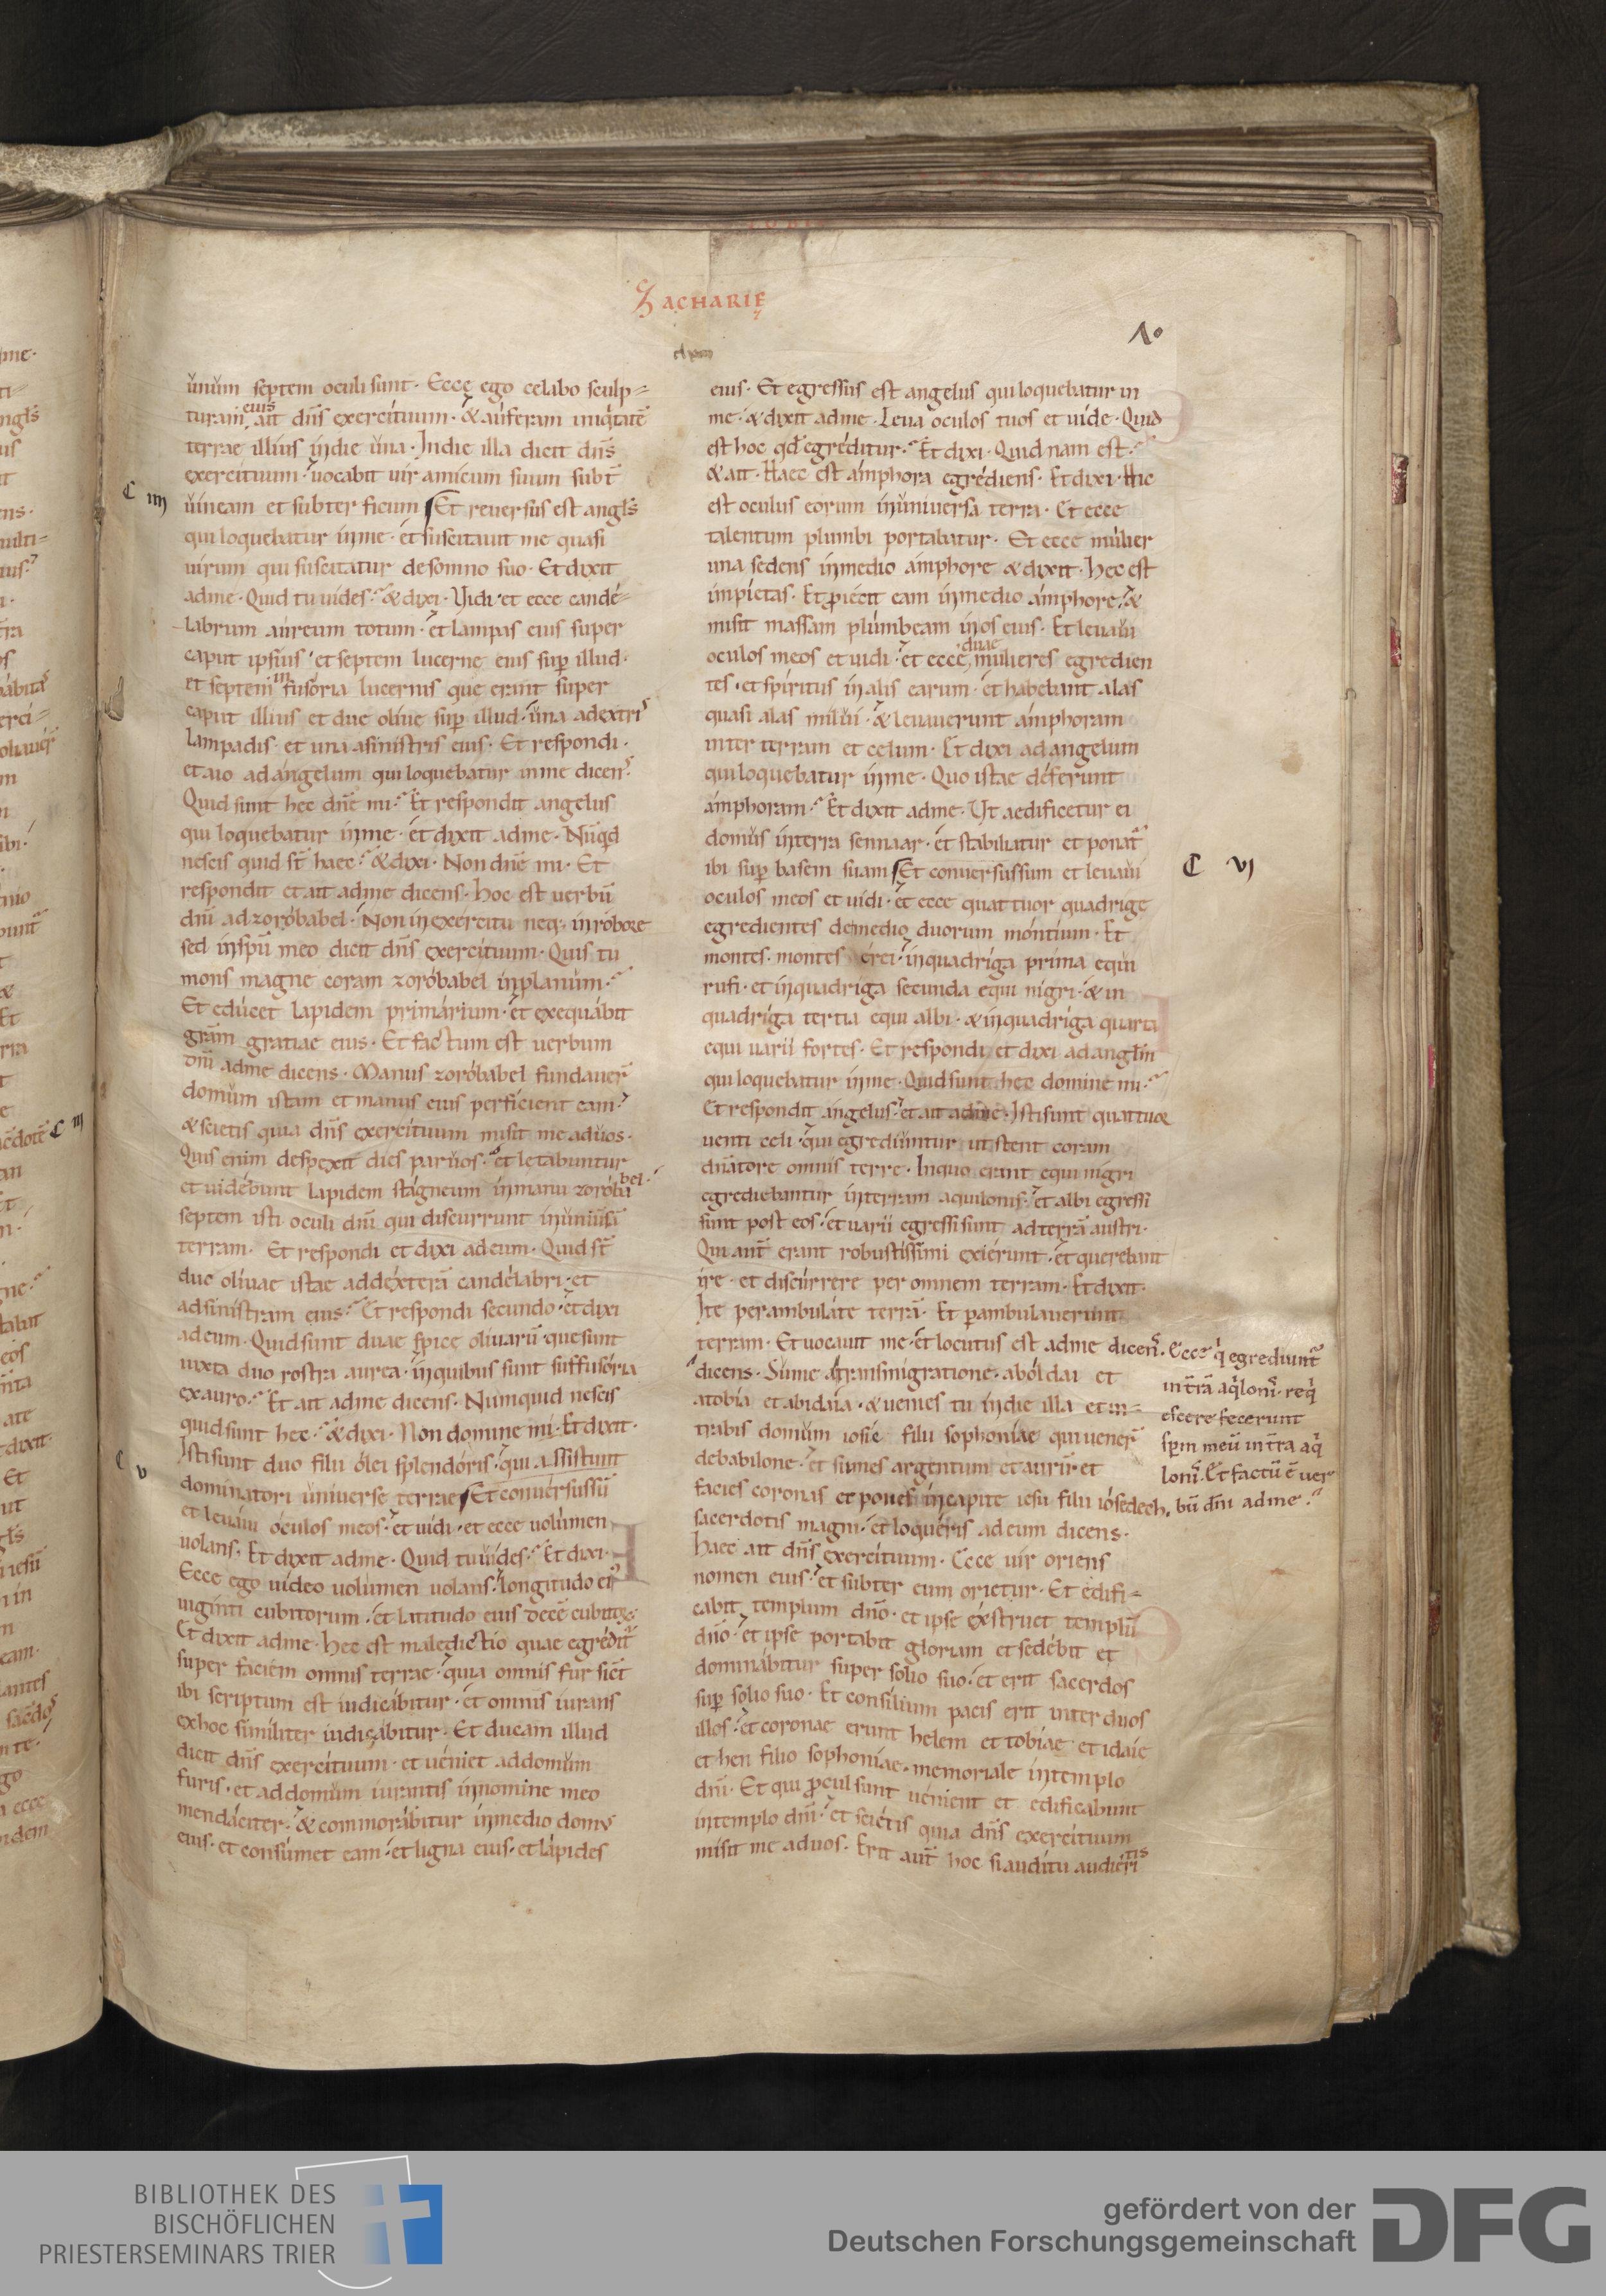 ZACHARIĘ
unum septem oculi sunt · Ecce ego celabo sculp=
turam eius ait dn̄s exercituum · & auferam iniq̇tatē
terrae illius indie una · Indie illa dicit dn̄s
exercituum · uocabit uir amicum suum subt̄
C IIII
uineam et subter ficum Et reuersus est angl̄s
qui loquebatur inme · et suscitauit me quasi
uirum qui suscitatur desomno suo · Et dixit
adme · Quid tu uides · & dixi · Uidi et ecce cande=
labrum aureum totum · et lampas eius super
caput ipsius et septem lucerne eius sup̄ illud ·
et septem infusoria lucernis que erant super
caput illius et due oliue sup̄ illud · una adextris
lampadis · et una asinistris eius · Et respondi ·
et aio ad angelum qui loquebatur inme dicens̄
Quid sunt hec dn̄e mi · Et respondit angelus
qui loquebatur inme · et dixit adme · Nūq̇d
nescis quid st̄ haec · & dixi · Non dn̄e mi · Et
respondit et ait adme dicens · Hoc est uerbū
dn̄i ad zorobabel · Non in exercitu neq; inrobore
sed inspū meo dicit dn̄s exercituum · Quis tu
mons magne coram zorobabel inplanum ·
Et educet lapidem primarium · et exequabit
grām gratiae eius · Et factum est uerbum
dn̄i adme dicens · Manus zorobabel fundauer̄
domum istam et manus eius perficient eam ·
& scietis quia dn̄s exercituum misit me aduos ·
Quis enim despexit dies paruos · et letabuntur
et uidebunt lapidem stagneum inmanu zorobabel ·
septem isti oculi dn̄i qui discurrunt inuniūsā
terram · Et respondi et dixi adeum · Quid st̄
due oliuae istae addexterā candelabri · et
adsinistram eius · Et respondi secundo · et dixi
adeum · Quid sunt duae spicę oliuarū que sunt
iuxta duo rostra aurea · inquibus sunt suffusoria
exauro · Et ait adme dicens · Numquid nescis
quid sunt hec · & dixi · Non domine mi · Et dixit ·
Isti sunt duo filii olei splendoris · qui assistunt
C V
dominatori uniuerse terrae Et conuersus sū
et leuaui oculos meos · et uidi · et ecce uolumen
uolans · Et dixit adme · Quid tu uides · Et dixi ·
Ecce ego uideo uolumen uolans · longitudo ei᷒
uiginti cubitorum · et latitudo eius decē cubitoꝝ ·
Et dixit adme · Hec est maledictio quae egredit̄
super faciem omnis terrae · quia omnis fur sic̄t
ibi scriptum est iudicabitur · et omnis iurans
exhoc similiter iudicabitur · Et ducam illud
dicit dn̄s exercituum · et ueniet addomum
furis · et addomum iurantis innomine meo
mendaciter · & commorabitur inmedio domus
eius · et consumet eam · et ligna eius · et lapides
eius · Et egressus est angelus qui loquebatur in
me · & dixit adme · Leua oculos tuos et uide · Quid
est hoc qd̄ egreditur · Et dixi · Quid nam est ·
& ait · Haec est amphora egrediens · Et dixi · Hic
est oculus eorum inuniuersa terra · Et ecce
talentum plumbi portabatur · Et ecce mulier
una sedens inmedio amphore & dixit · Hec est
impietas · Et ꝓiecit eam inmedio amphore · &
misit massam plumbeam inos eius · Et leuaui
oculos meos et uidi · et ecce duae mulieres egredien
tes · et spiritus inalis earum · et habebant alas
quasi alas milui · & leuauerunt amphoram
inter terram et celum · Et dixi ad angelum
qui loquebatur inme · Quo istae deferunt
amphoram · Et dixit adme · Ut aedificetur ei
domus interra sennaar · et stabiliatur et ponat̄
ibi sup̄ basem suam Et conuersus sum et leuaui
C VI
oculos meos et uidi · et ecce quattuor quadrige
egredientes demedio duorum montium · Et
montes · montes erei · inquadriga prima equi
rufi · et inquadriga secunda equi nigri · & in
quadriga tertia equi albi · & inquadriga quarta
equi uarii fortes · Et respondi et dixi ad angl̄m
qui loquebatur inme · Quid sunt hec domine mi ·
Et respondit angelus · et ait adme · Isti sunt quattuor
uenti celi · qui egrediuntur ut stent coram
dn̄atore omnis terre · Inquo erant equi nigri
egrediebantur interram aquilonis · et albi egressi
sunt post eos · et uarii egressi sunt adterrā austri ·
Qui aut̄ erant robustissimi exierunt · et querebant
ire · et discurrere per omnem terram · Et dixit ·
Ite perambulate terrā · Et ꝑambulauerunt
terram · Et uocauit me · et locutus est adme dicen̄s · Ecce q̇ egrediunt̄
in tr̄ā aq̇loni᷒ · req̇
escere fecerunt
spm̄ meū in tr̄a aq̇
loni᷒ · Et factū ē uer
bū dn̄i adme ·
dicens · Sume atransmigratione · aboldai et
atobia et abidaia · & uenies tu indie illa et in=
trabis domum iosie filii sophoniae qui uener̄
debabilone · et sumes argentum et aurum et
facies coronas et pones incapite iesu filii iosedech
sacerdotis magni · et loqueris adeum dicens ·
Haec ait dn̄s exercituum · Ecce uir oriens
nomen eius · et subter eum orietur · Et edifi=
cabit templum dn̄o · et ipse exstruet templū
dn̄o · et ipse portabit gloriam et sedebit et
dominabitur super solio suo · et erit sacerdos
sup̄ solio suo · Et consilium pacis erit inter duos
illos · et coronae erunt helem et tobiae et idaie
et hen filio sophoniae · memoriale intemplo
dn̄i · Et qui ꝓcul sunt uenient et edificabunt
intemplo dn̄i · et scietis quia dn̄s exercituum
misit me aduos · Erit aut̄ hoc si auditu audieritis
BIBLIOTHEK DES
BISCHÖFLICHEN
PRIESTERSEMINARS TRIER
gefördert von der
Deutschen Forschungsgemeinschaft
DFG